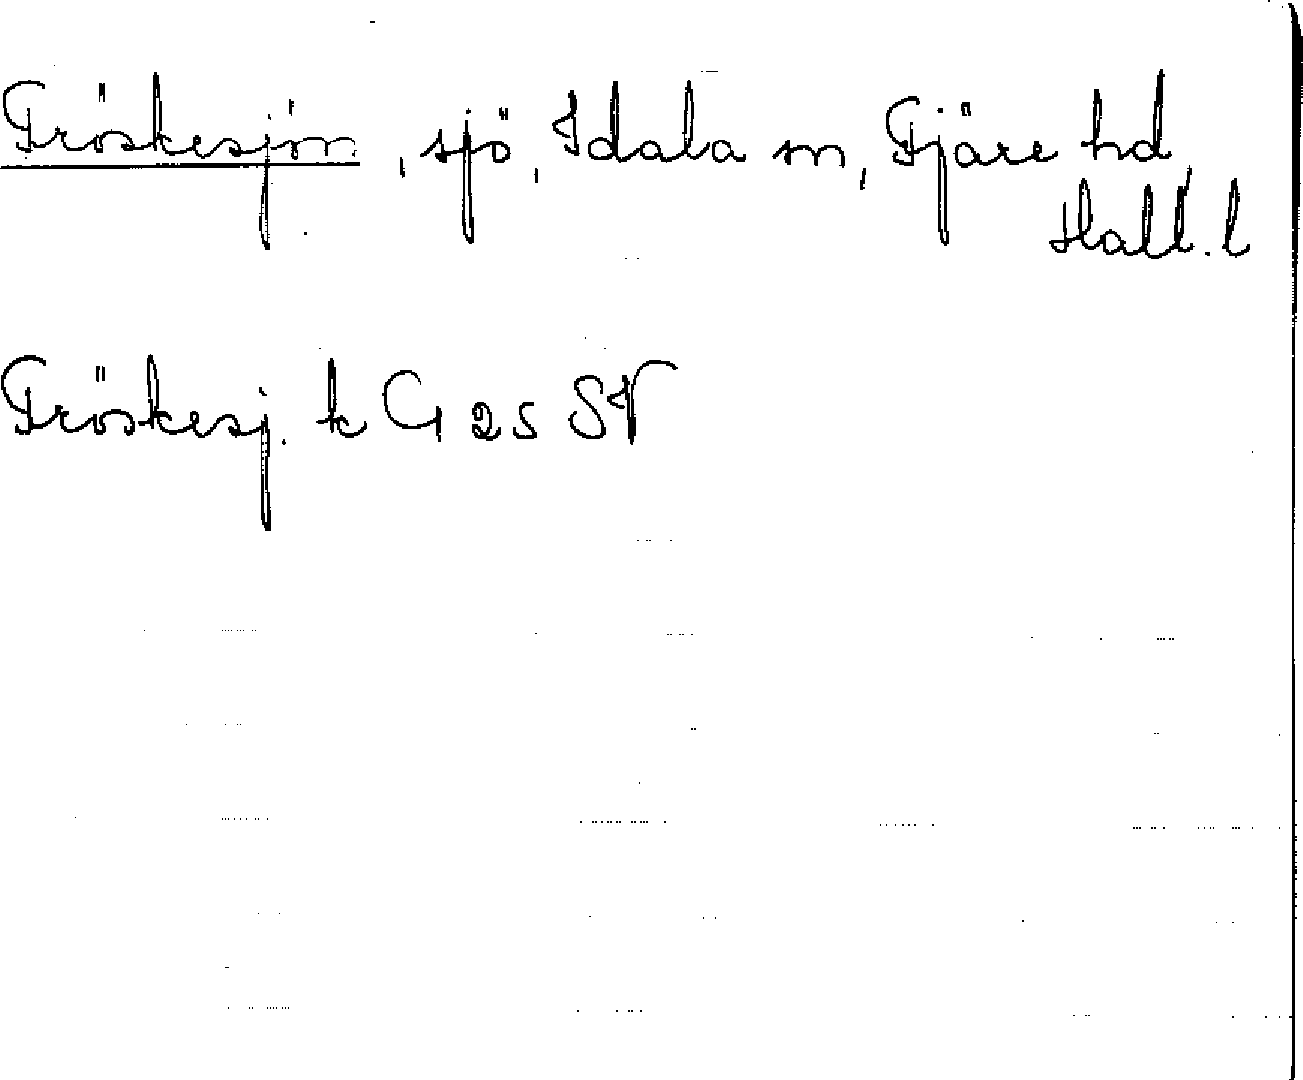 Fröskesjön, sjö, Idala sn, Fjäre hd,
Hall. l
Fröskesj. k G 25 SV